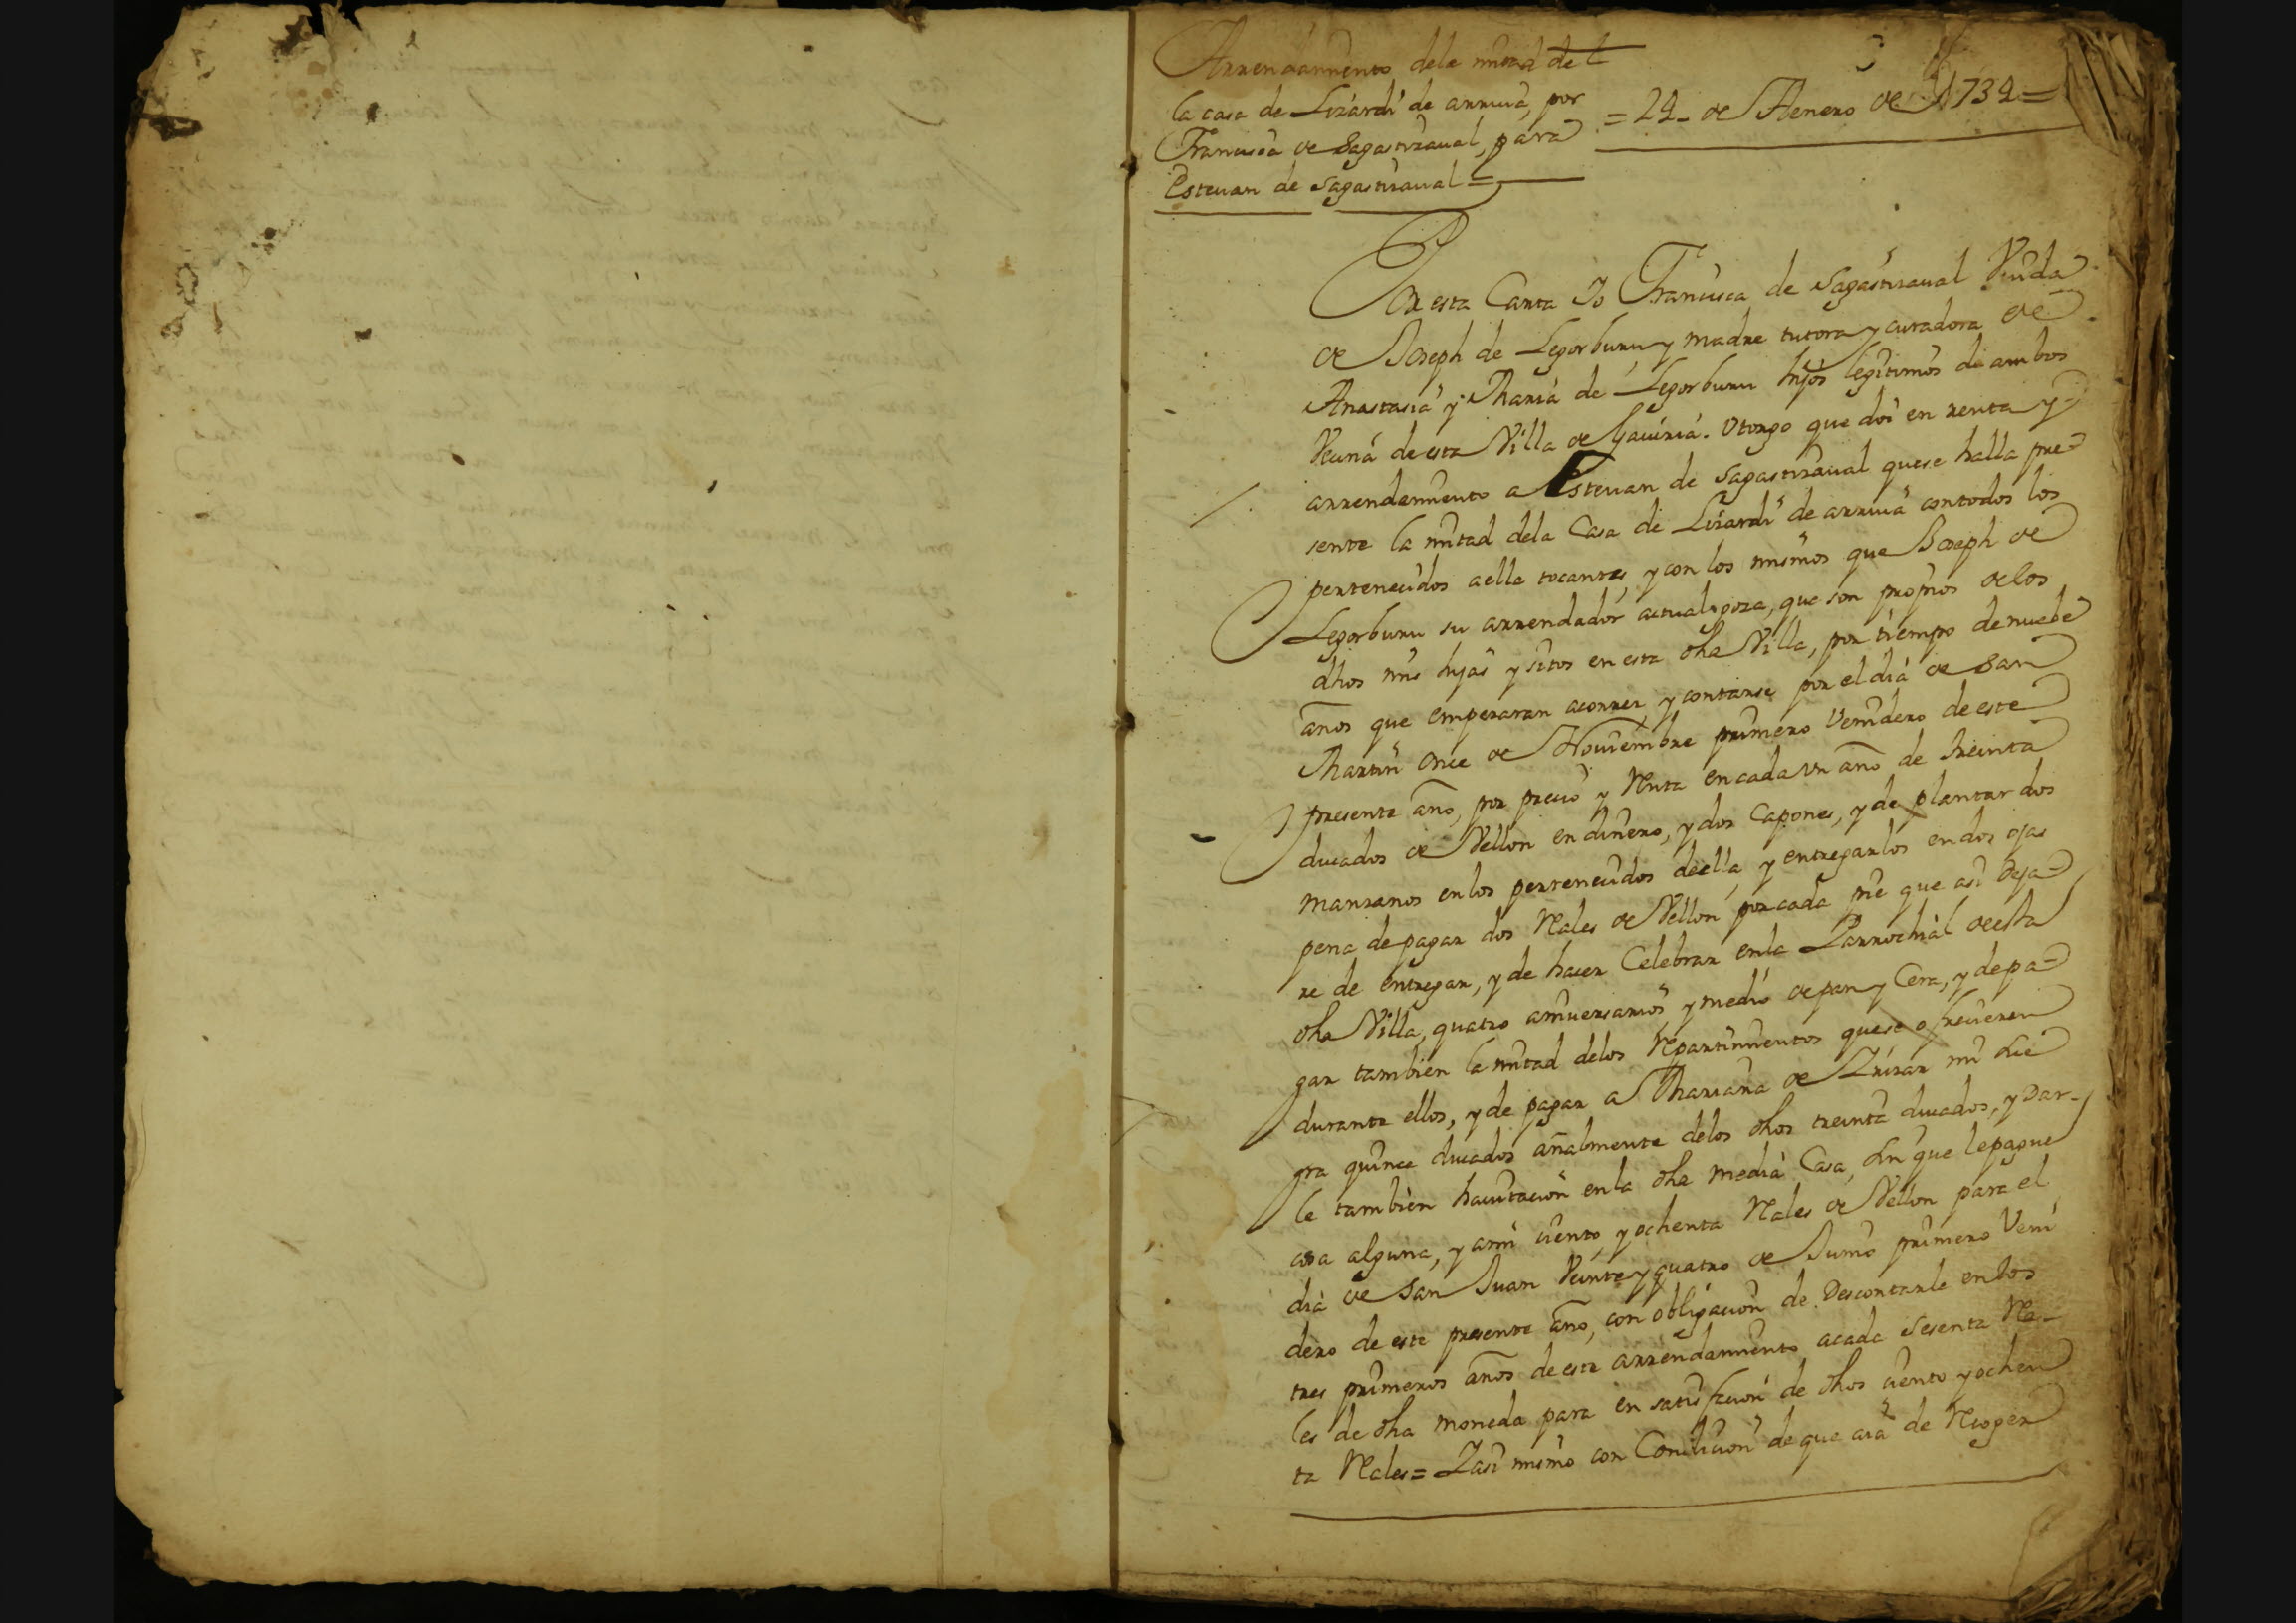 Arrendamiento dela mitad de
la casa de Lizardi de arriua, por
Francisca de Sagastizaual, para
Esteuan de Sagastizaual =
= 24 - de Henero de 1734 =
Por esta Carta Yo Francisca de Sagastizaual Viuda
de Joseph de Legorburu y madre tutora y curadora de
Anastasia y Maria de Legorburu hijos legitimos de ambos
Vecina de esta Villa de Gauiria. Otorgo que doi en renta y
arrendamiento a Esteuan de Sagastizaual quese halla pre
sente la mitad dela Casa de Lizardi de arriua contodos los
pertenecidos aella tocantes, y con los mismos que Joseph de
Legorburu su arrendador actual goza, que son propios delos
dhos mis hijas y sitos en esta dha Villa, por tiempo de nuebe
años que empezaran acorrer, y contarse por el dia de San
Martin once de Nouiembre primero Venidero de este
presente año, por precio y Renta en cada vn año de treinta
ducados de Vellon en dinero, y dos Capones, y de plantar dos
manzanos enlos pertenecidos deella, y entregarlos en dos ojas
pena de pagar dos Rales de Vellon por cada pie que asi Deja=
re de entregar, y de hacer Celebrar enla Parrochial deesta
dha Villa, quatro aniuersarios y medio de pan y Cera, y de pa=
gar tambien la mitad delos Repartimientos quese ofrecieren
durante ellos, y de pagar a Mariana de Irizar mi Sue
gra quince ducados añalmente delos dhos treinta ducados, y Dar-
le tambien hauitacion enla dha media Casa, sin que lepague
cosa alguna, y ami ciento, y ochenta Rales de Vellon para el
dia de San Juan Veinte y quatro de Junio primero Veni
dero de este presente año, con obligacion de Descontarle enlos
tres primeros años de este arrendamiento acada Sesenta Re-
les de dha moneda para en satisfacion de dhos ciento y ochen
ta Rales = Yasi mismo con Condicion de que aia de Recoger